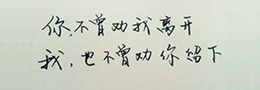 你,不曾劝我离开
我,也不曾劝你留下